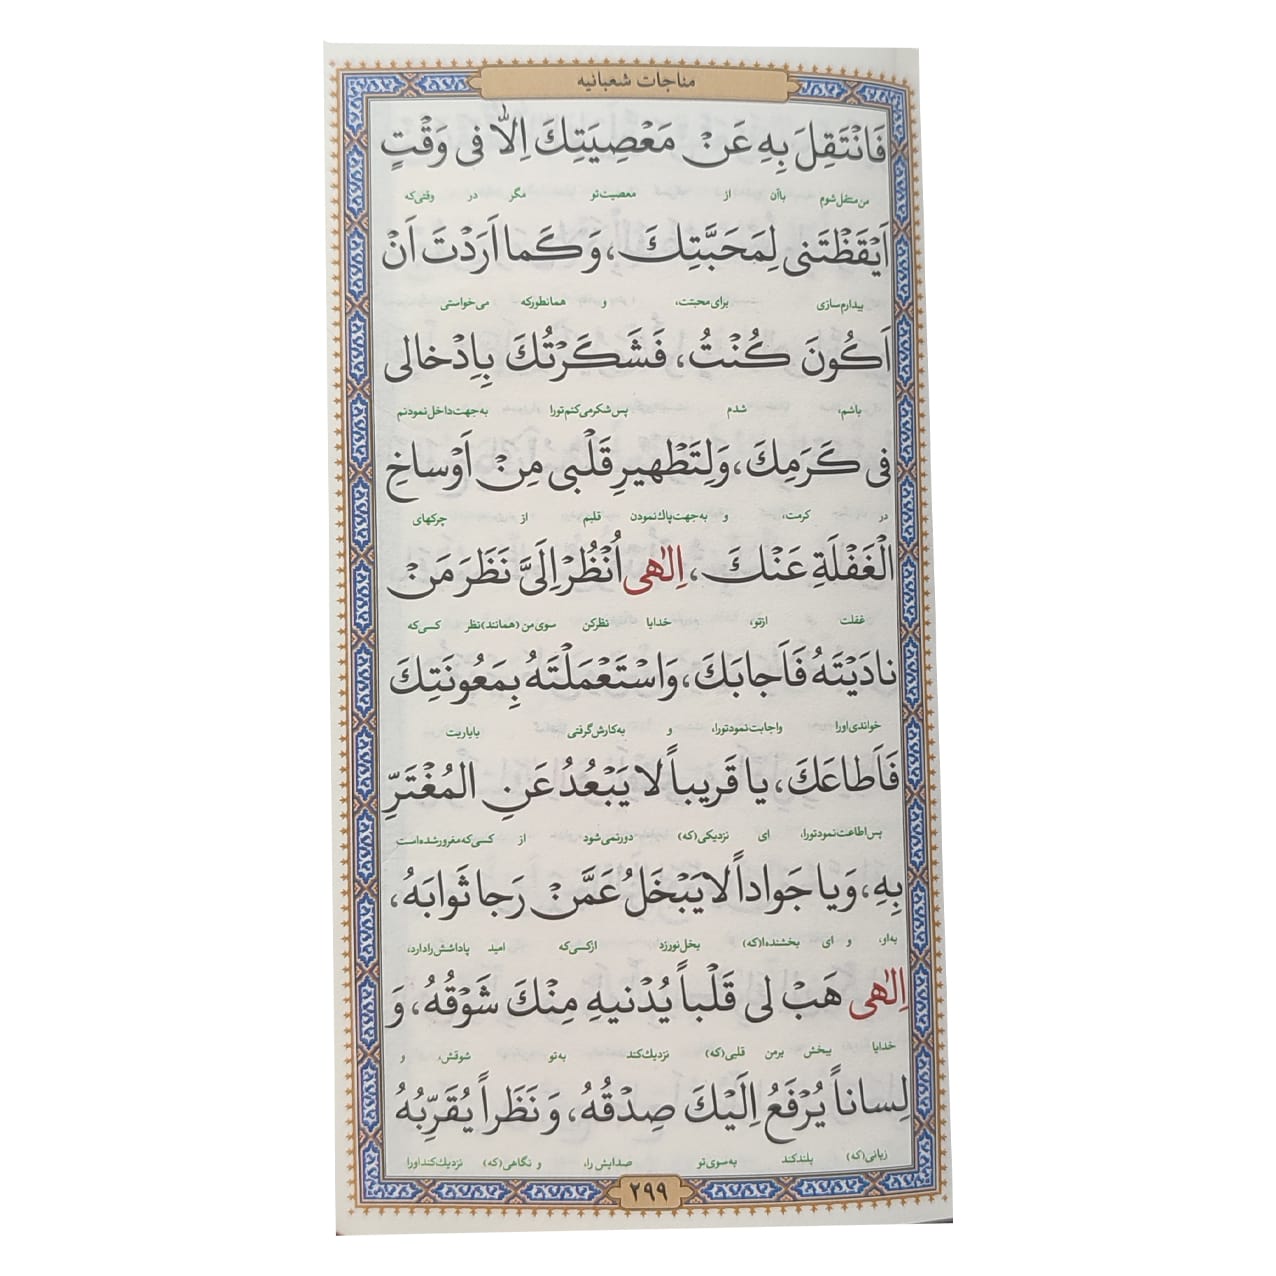 مناجات شعبانیه
فَاَنْتَقِلَ بِهِ عَنْ مَعْصِیَتِكَ اِلاّٰ فی وَقْتٍ
من منتقل شوم باآن از معصیت تو مگر در وقتی که
اَیْقَظْتَنی لِمَحَبَّتِكَ، وَ كَما اَرَدْتَ اَنْ
بیدارم سازی برای محبتت، و همانطورکه می‌خواستی
اَكُونَ كُنْتُ، فَشَكَرْتُكَ بِاِدْخالی
باشم، شدم پس شکر می‌کنم تو را به جهت داخل نمودنم
فی كَرَمِكَ، وَ لِتَطْهیرِ قَلْبی مِنْ اَوْساخِ
در کرمت، و به جهت پاك نمودن قلبم از چرکهای
الْغَفْلَةِ عَنْكَ، اِلٰهی اُنْظُرْ اِلَیَّ نَظَرَ مَنْ
غفلت ازتو، خدایا نظرکن سوی من (همانند) نظر کسی که
نادَیْتَهُ فَاَجابَكَ، وَاسْتَعْمَلْتَهُ بِمَعُونَتِكَ
خواندی اورا واجابت نمود تورا، و به کارش گرفتی بایاریت
فَاَطاعَكَ، یا قَریباً لا یَبْعُدُ عَنِ المُغْتَرِّ
پس اطاعت نمود تورا، ای نزدیکی (که) دور نمی‌شود از کسی که مغرور شده است
بِهِ، وَیا جَواداً لایَبْخَلُ عَمَّنْ رَجا ثَوابَهُ،
به او، و ای بخشنده‌ا (که) بخل نورزد ازکسی که امید پاداشش را دارد،
اِلٰهی هَبْ لی قَلْباً یُدْنیهِ مِنْكَ شَوْقُهُ، وَ
خدایا ببخش برمن قلبی (که) نزدیك کند به تو شوقش، و
لِساناً یُرْفَعُ اِلَیْكَ صِدْقُهُ، وَ نَظَراً یُقَرِّبُهُ
زبانی (که) بلند کند به سوی تو صدایش را، و نگاهی (که) نزدیك کند اورا
۲۹۹